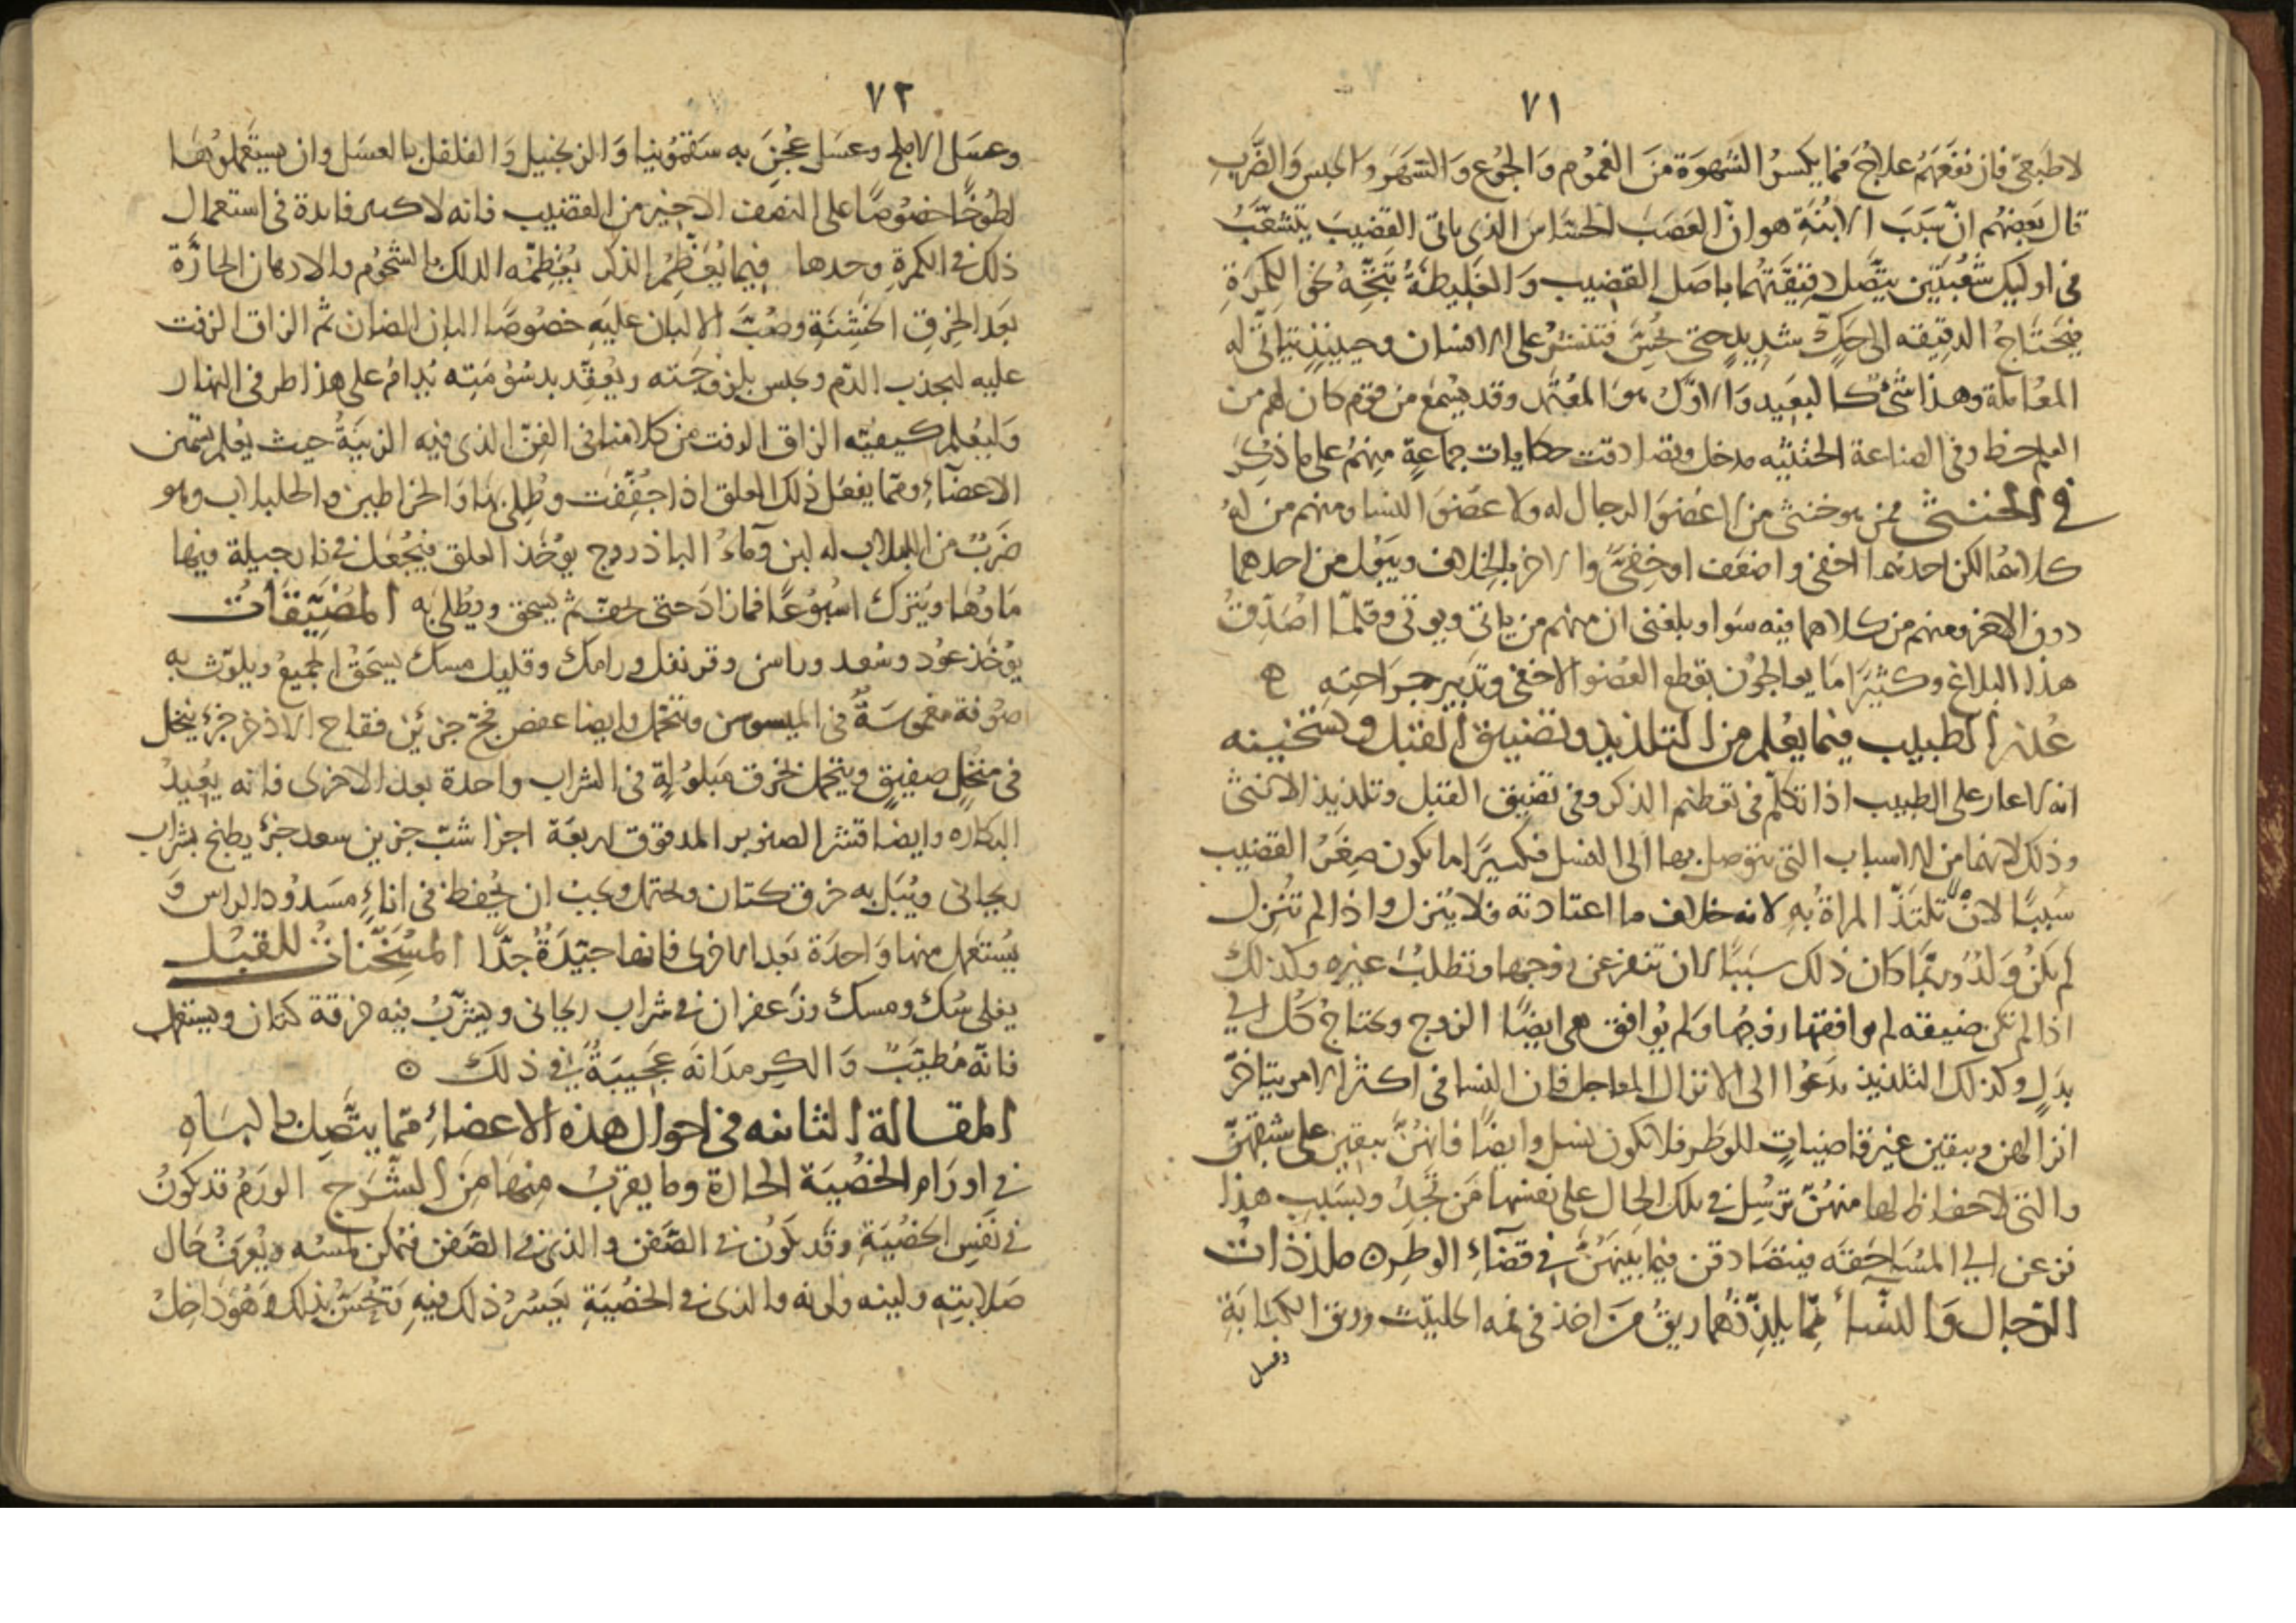 ٧١
لا طبعي فان نفعهم علاج فما يكسر الشهوة من الغموم والجوع والسهر والحبس والضرب
قال بعضهم ان سبب الابنة هو ان العصب الحساس الذي ياتي القضيب يتشعب
في اوليك شعبتين يتصل دقيقتهما باصل القضيب والغليظة تتجه نحو الكمرة
فيحتاج الدقيقه الى حك شديد حتى يحس فتنتشر على الانسان وحينيذ يتاتى له
المعاملة وهذا شئ كالبعيد والاول هو المعتمد وقد يسمع من قوم كان لهم من
العلم حظ وفي الصناعة الخنثيه مدخل وتصادقت حكايات جماعة منهم على ما ذكر
في الخنثى ممن هو خنثى من لا عضو الرجال له ولا عضو النسا ومنهم من له
كلاهما لكن احدهما اخفى واضعف او خفي والاخر بالخلاف ويبول من احدهما
دون الاخر ومنهم من كلاهما فيه سوا وبلغني ان منهم من ياتي ويوتى وقلما اصدق
هذا البلاغ وكثيرا ما يعالجون بقطع العضو الاخفى وتدبير جراحته ه
عذر الطبيب فيما يعلم من التلذيذ وتضييق القبل وتسخينه
انه لا عار على الطبيب اذا تكلم في تعظيم الذكر وفي تضييق القبل وتلذيذ الانثى
وذلك لانهما من الاسباب التي يتوصل بها الى النسل فكثيرا ما يكون صغر القضيب
سببا لان تلتذ المراة به لانه خلاف ما اعتادته فلا ينزل واذا لم تنزل
لم يكن ولد وربما كان ذلك سببا لان تنفر عن زوجها وتطلب غيره وكذلك
اذا لم تكن ضيقه لم يوافقها زوجها ولم يوافق هي ايضا الزوج ويحتاج كل الى
بدل وكذلك التلذيذ يدعوا الى الانزال المعاجل فان النسا في اكثر الامر يتاخر
انزالهن ويبقين غير قاضيات للوطر فلا يكون نسل وايضا فانهن يبقين على شبقهن
والتي لا حفاظ لها منهن ترسل في تلك الحال على نفسها من تجد وبسبب هذا
فزعن الى المساحقه فيتصادقن فيما بينهن في قضاء الوطر ه ملذذات
الرجال والنساء مما يلذذهما ريق من اخذ في فمه الحلتيت وريق الكبابة
وعسل
٧٢
وعسل الاملج وعسل عجن به سقمونيا والزنجبيل والفلفل بالعسل وان يستعملوهما
لطوخا خصوصا على النصف الاخير من القضيب فانه لا كبير فايدة في استعمال
ذلك في الكمرة وحدها فيما يعظم الذكر يعظمه الدلك بالشحوم والادهان الحارة
بعد الخرق الخشنة وصب الالبان عليه خصوصا البان الضان ثم الزاق الزفت
عليه ليجذب الدم ويحبس بلزوجته ويعقد بدسومته يدام على هذا طرفي النهار
وليعلم كيفيته الزاق الزفت من كلامنا في الفن الذي فيه الزينة حيث يعلم تسمين
الاعضاء ومما يفعل ذلك العلق اذا جففت وطلي بها والخراطين والحلبلاب وهو
ضرب من اللبلاب له لبن وماء الباذروج يوخذ العلق فيجعل في نارجيلة فيها
ماوها ويترك اسبوعا فما زاد حتى يجف ثم يسحق ويطلى به المضيقات
يوخذ عود وسعد وراسن وقرنفل ورامك وقليل مسك يسحق الجميع ويلوث به
صوفة مغموسة في الميسوسن ويتحمل وايضا عفص فج جزئين فقاح الاذخر جزء ينخل
في منخل صفيق ويتحمل بخرق مبلولة في الشراب واحدة بعد الاخرى فانه يعيد
البكاره وايضا قشر الصنوبر المدقوق اربعة اجزا شب جزين سعد جزء يطبخ بشراب
ريحاني ويبل به خرق كتان ويحتمل ويجب ان يحفظ في اناء مسدود الراس و
يستعمل منها واحدة بعد الاخرى فانها جيدة جدا المسخنات للقبل
يغلى سك ومسك وزعفران في شراب ريحاني ويشرب فيه خرقة كتان ويستعمل
فانه مطيب والكرمدانه عجيبة في ذلك ه
المقالة الثانيه في احوال هذه الاعضاء مما يتصل بالباه
في اورام الخصية الحارة وما يقرب منها من الشرج الورم قد يكون
في نفس الخصية وقد يكون في الصفن والذي في الصفن يمكن لمسه ويعرف حال
صلابته ولينه ولونه والذي في الخصية يعسر ذلك فيه وتحس بذلك وهو داخل